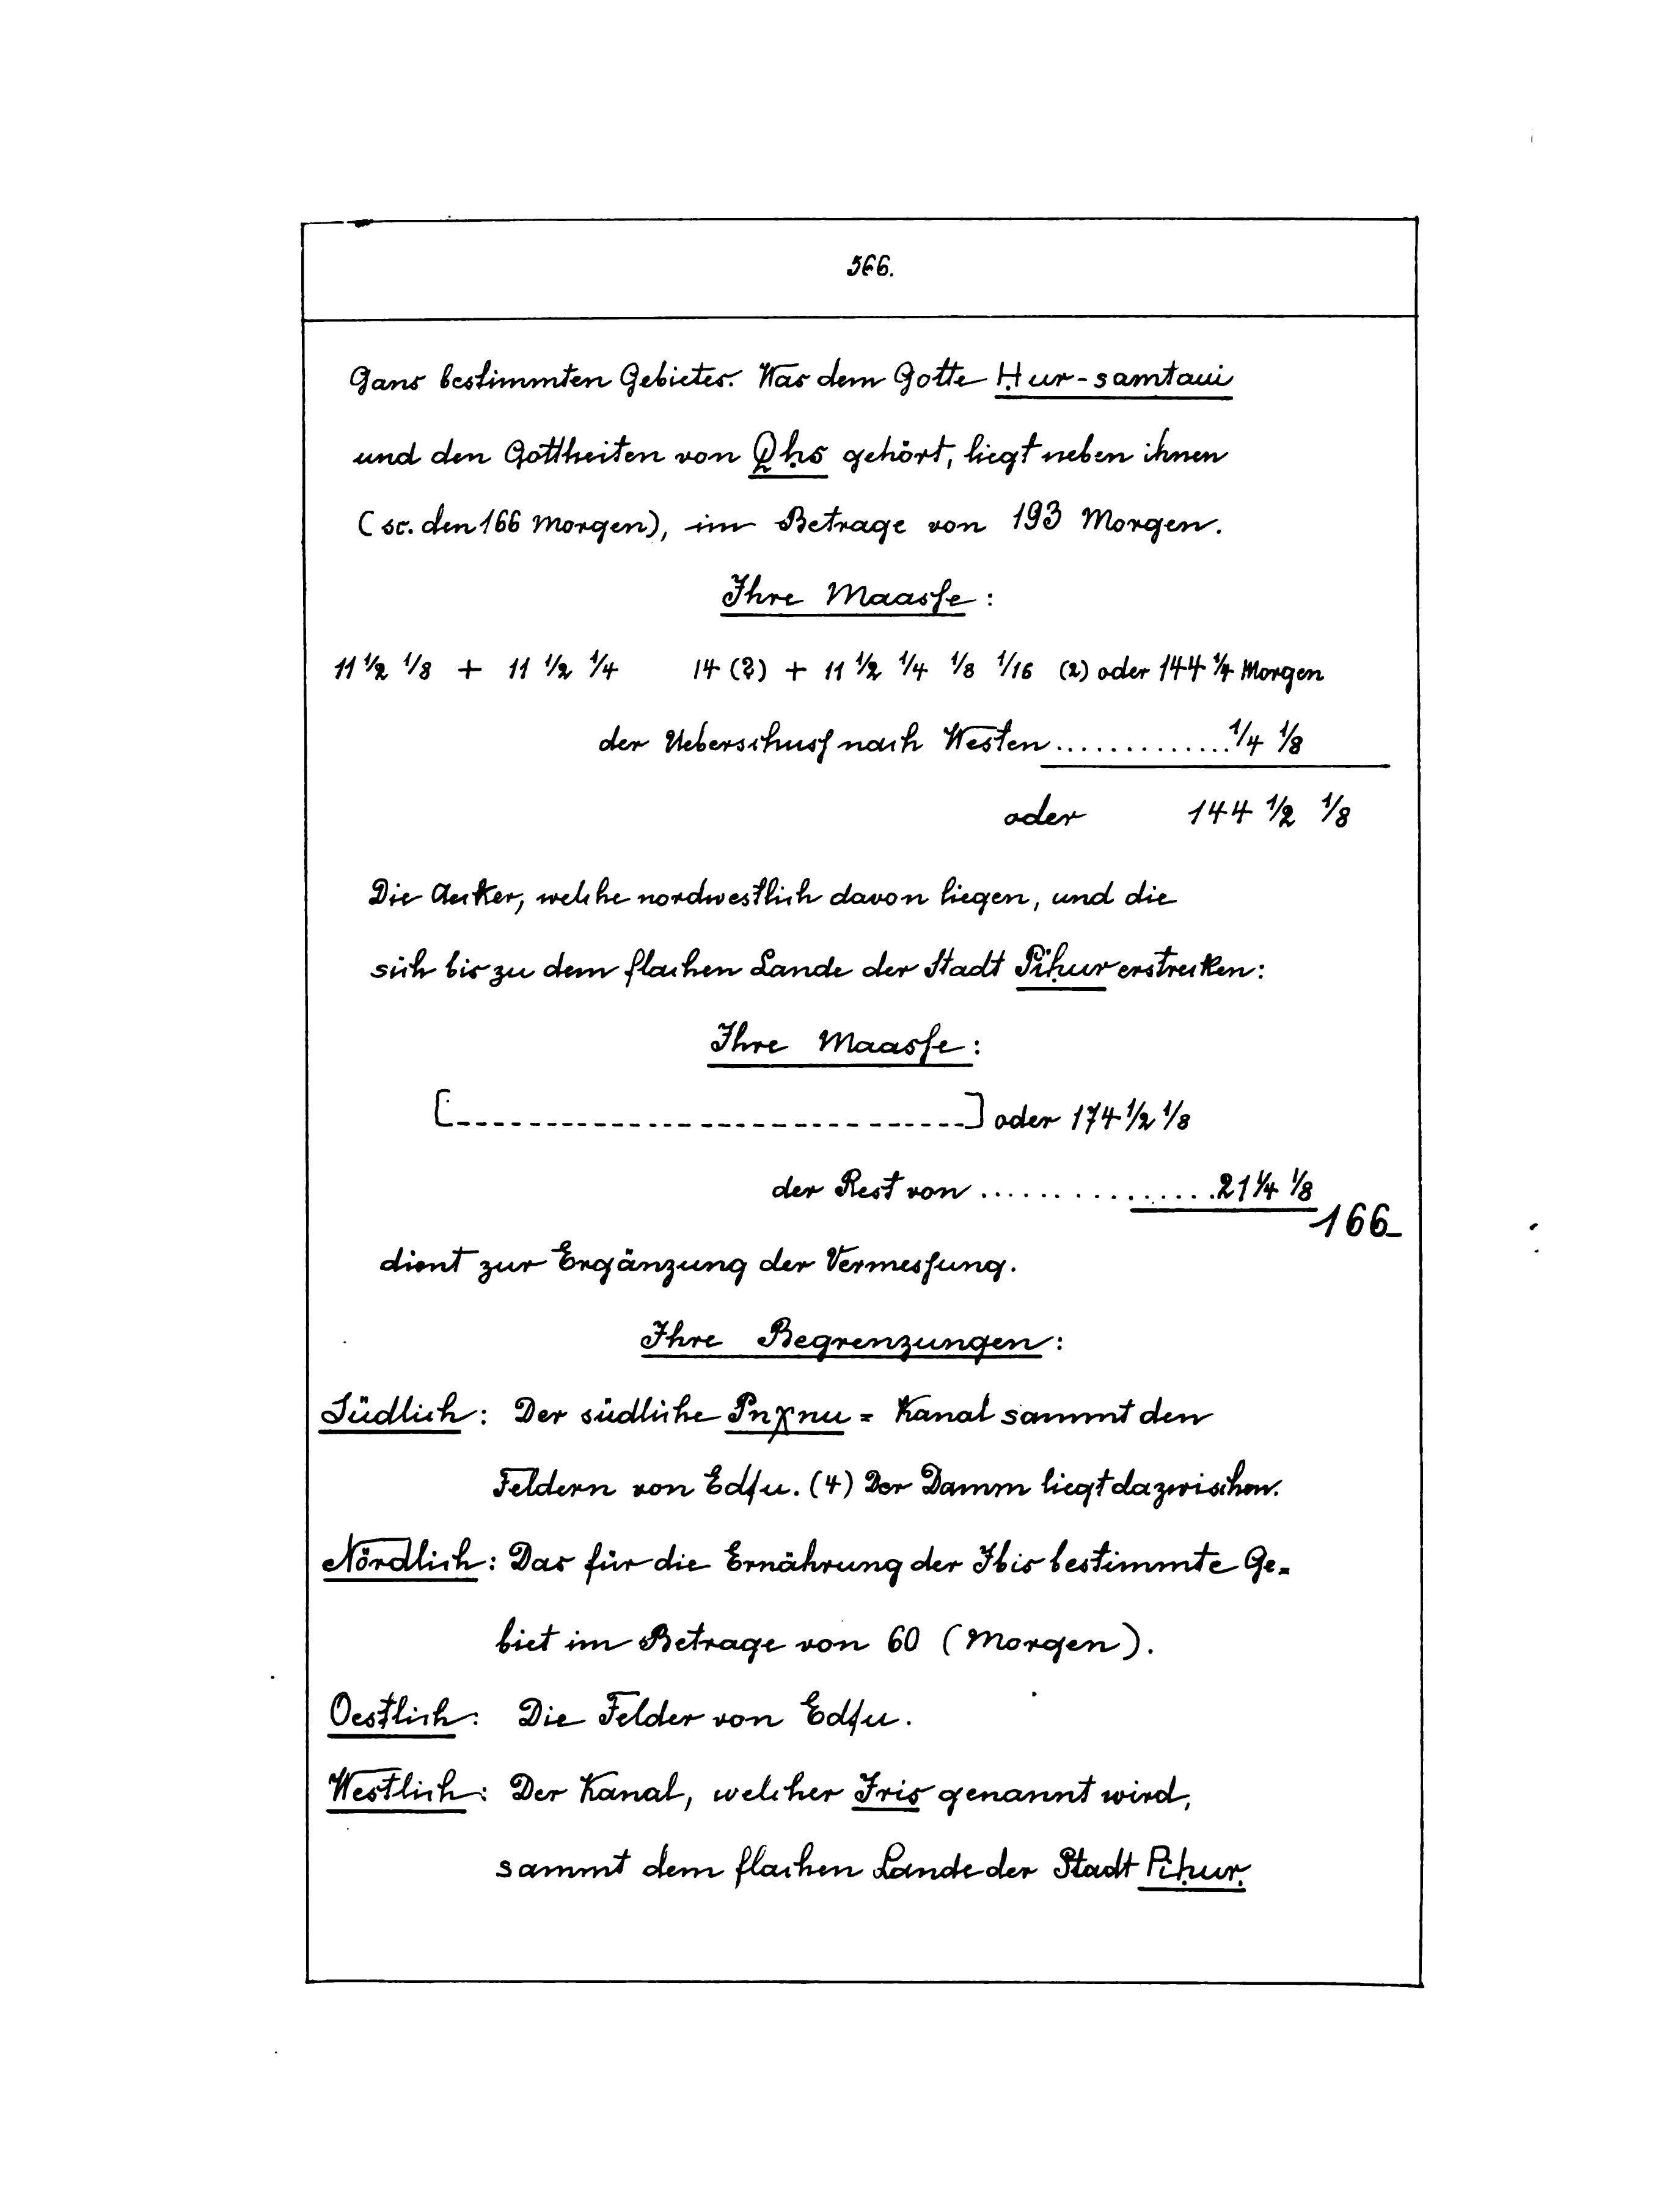 566.
Gans bestimmten Gebietes. Was dem Gotte Ḥur-samtaui
und den Gottheiten von Qḥs gehört, liegt neben ihnen
(sc. den 166 Morgen), im Betrage von 193 Morgen.
Ihre Maasse:
11 1/2 1/8 + 11 1/2 1/4 14 (?) + 11 1/2 1/4 1/8 1/16 (2) oder 144 1/4 Morgen
der Ueberschuss nach Westen.............1/4 1/8
oder 144 1/2 1/8
Die Aecker, welche nordwestlich davon liegen, und die
sich bis zu dem flachen Lande der Stadt Piḥur erstrecken:
Ihre Maasse:
[-----------------------------] oder 174 1/2 1/8
der Rest von .................21 1/4 1/8
166
dient zur Ergänzung der Vermessung.
Ihre Begrenzungen:
Südlich: Der südliche Pnχnu = Kanal sammt den
Feldern von Edfu. (4) Der Damm liegt dazwischen.
Nördlich: Das für die Ernährung der Ibis bestimmte Ge=
biet im Betrage von 60 (Morgen).
Oestlich: Die Felder von Edfu.
Westlich: Der Kanal, welcher Iris genannt wird,
sammt dem flachen Lande der Stadt Piḥur.